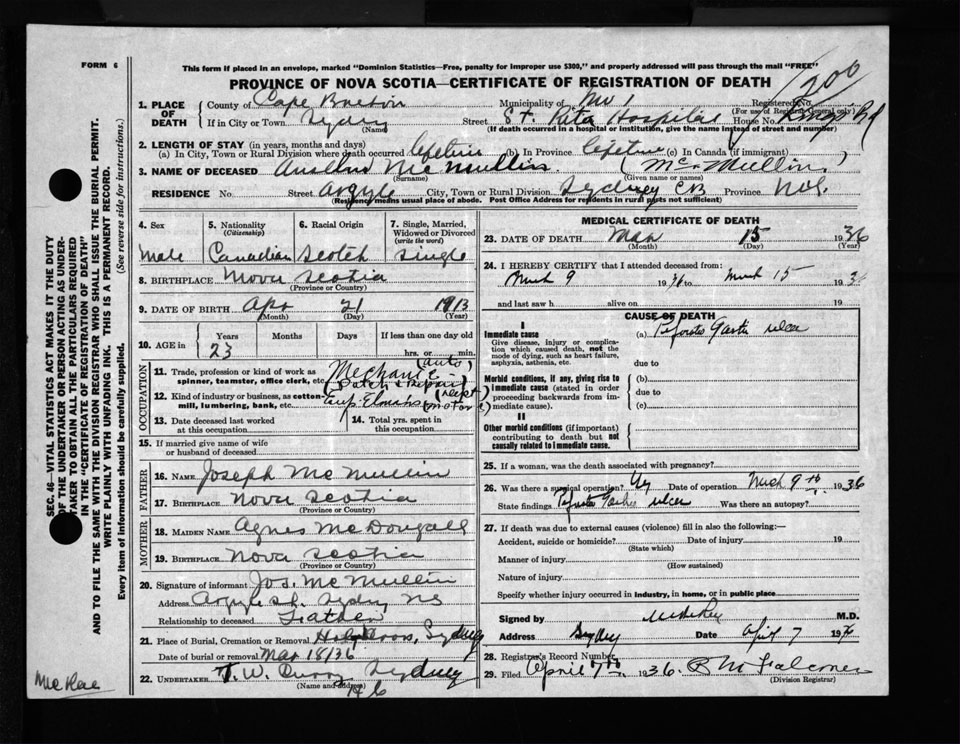 FORM 6
This form if placed in an envelope, marked "Dominion Statistics—Free, penalty for improper use $300," and properly addressed will pass through the mail "FREE"
PROVINCE OF NOVA SCOTIA—CERTIFICATE OF REGISTRATION OF DEATH
200
1. PLACE OF DEATH
County of Cape Breton Municipality of No 1 Registered No.
(For use of Registrar General only)
If in City or Town Sydney Street St. Rita Hospital House No. Kings Rd
(Name) (If death occurred in a hospital or institution, give the name instead of street and number)
2. LENGTH OF STAY (in years, months and days)
(a) In City, Town or Rural Division where death occurred lifetime (b) In Province lifetime (c) In Canada (if immigrant)
3. NAME OF DECEASED McMullin (McMullin)
(Surname) (Given name or names)
RESIDENCE No. Street Argyle City, Town or Rural Division Sydney CB Province N.S.
(Residence means usual place of abode. Post Office Address for residents in rural parts not sufficient)
4. Sex Male
5. Nationality (Citizenship) Canadian
6. Racial Origin Scotch
7. Single, Married, Widowed or Divorced (write the word) Single
8. BIRTHPLACE Nova Scotia
(Province or Country)
9. DATE OF BIRTH Apr 21 1913
(Month) (Day) (Year)
10. AGE in Years Months Days If less than one day old
23 hrs. or min.
OCCUPATION
11. Trade, profession or kind of work as spinner, teamster, office clerk, etc. Mechanic (auto)
12. Kind of industry or business, as cotton-mill, lumbering, bank, etc.
13. Date deceased last worked at this occupation
14. Total yrs. spent in this occupation
15. If married give name of wife or husband of deceased
FATHER
16. NAME Joseph McMullin
17. BIRTHPLACE Nova Scotia
(Province or Country)
MOTHER
18. MAIDEN NAME Agnes McDougall
19. BIRTHPLACE Nova Scotia
(Province or Country)
20. Signature of informant Jos. McMullin
Address Argyle St. Sydney NS
Relationship to deceased Father
21. Place of Burial, Cremation or Removal Holy Cross, Sydney
Date of burial or removal Mar 18/36
22. UNDERTAKER T. W. Curry Sydney
(Name and address)
MEDICAL CERTIFICATE OF DEATH
23. DATE OF DEATH Mar 15 1936
(Month) (Day) (Year)
24. I HEREBY CERTIFY that I attended deceased from:
March 9 1936 to March 15 1936
and last saw h alive on 19
CAUSE OF DEATH
I
Immediate cause
Give disease, injury or complication which caused death, not the mode of dying, such as heart failure, asphyxia, asthenia, etc.
(a) Gastric ulcer
due to
Morbid conditions, if any, giving rise to immediate cause (stated in order proceeding backwards from immediate cause).
(b)
due to
(c)
II
Other morbid conditions (if important) contributing to death but not causally related to immediate cause.
25. If a woman, was the death associated with pregnancy?
26. Was there a surgical operation? Yes Date of operation March 9th 1936
State findings ulcer Was there an autopsy?
27. If death was due to external causes (violence) fill in also the following:—
Accident, suicide or homicide? Date of injury 19
(State which)
Manner of injury
(How sustained)
Nature of injury
Specify whether injury occurred in industry, in home, or in public place
Signed by M.D.
Address Sydney Date April 7 1936
28. Registrar's Record Number
29. Filed April 7th 1936. R M Falconer
(Division Registrar)
McRae
SEC. 46—VITAL STATISTICS ACT MAKES IT THE DUTY OF THE UNDERTAKER OR PERSON ACTING AS UNDERTAKER TO OBTAIN ALL THE PARTICULARS REQUIRED IN THE "CERTIFICATE OF REGISTRATION OF DEATH" AND TO FILE THE SAME WITH THE DIVISION REGISTRAR WHO SHALL ISSUE THE BURIAL PERMIT.
WRITE PLAINLY WITH UNFADING INK. THIS IS A PERMANENT RECORD.
Every item of information should be carefully supplied. (See reverse side for instructions.)